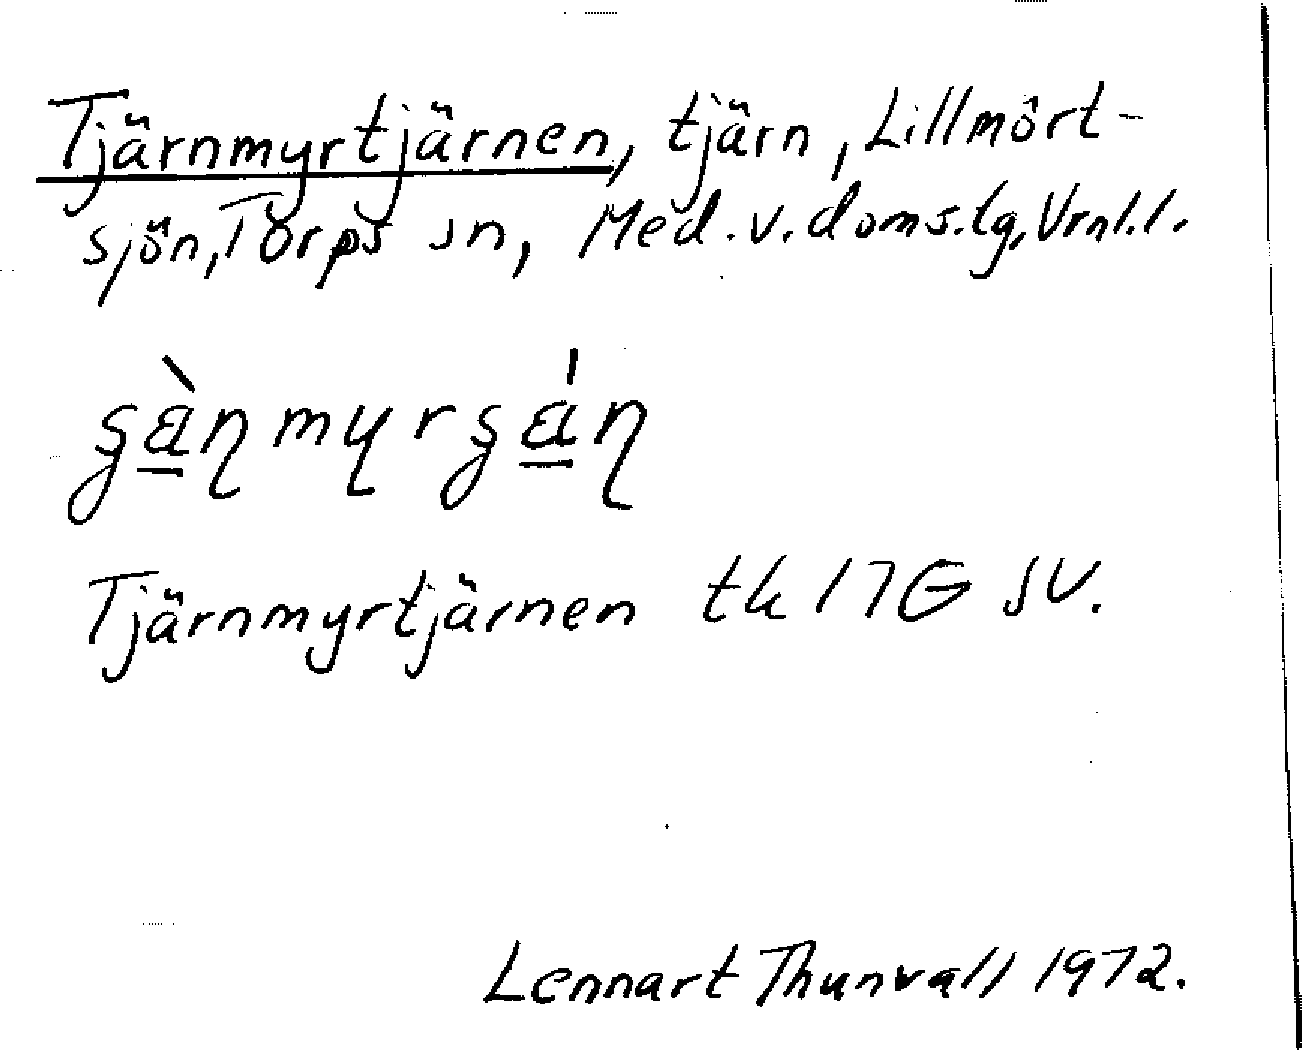 Tjärnmyrtjärnen, tjärn, Lillmört-
sjön, Torps sn, Med. v. doms.lg, Vrnl.l.
Tjärnmyrtjärnen tk 17G SV.
Lennart Thunvall 1972.